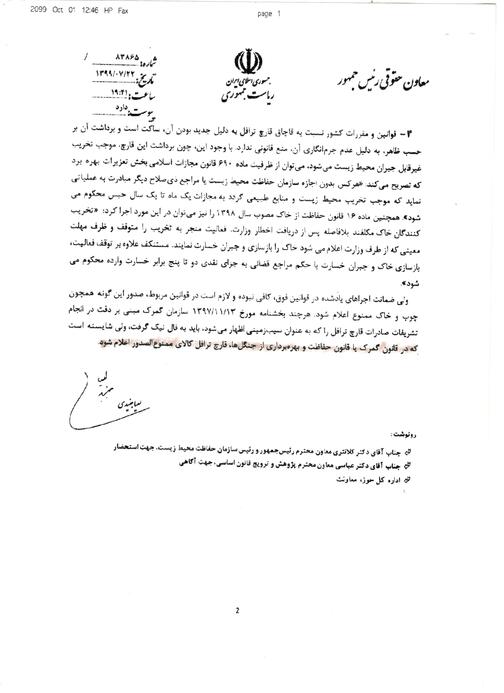 2099 Oct 01 12:46 HP Fax
page 1
شماره: ۸۳۸۶۵ /
تاریخ: ۱۳۹۹/۰۷/۲۲
ساعت: ۱۹:۴۱
پیوست: دارد
جمهوری اسلامی ایران
ریاست جمهوری
معاون حقوقی رئیس جمهور
۴- قوانین و مقررات کشور نسبت به قاچاق قارچ ترافل به دلیل جدید بودن آن، ساکت است و برداشت آن بر
حسب ظاهر، به دلیل عدم جرم‌انگاری آن، منع قانونی ندارد. با وجود این، چون برداشت این قارچ، موجب تخریب
غیرقابل جبران محیط زیست می‌شود، می‌توان از ظرفیت ماده ۶۹۰ قانون مجازات اسلامی بخش تعزیرات بهره برد
که تصریح می‌کند «هرکس بدون اجازه سازمان حفاظت محیط زیست یا مراجع ذی‌صلاح دیگر مبادرت به عملیاتی
نماید که موجب تخریب محیط زیست و منابع طبیعی گردد به مجازات یک ماه تا یک سال حبس محکوم می
شود». همچنین ماده ۱۶ قانون حفاظت از خاک مصوب سال ۱۳۹۸ را نیز می‌توان در این مورد اجرا کرد: «تخریب
کنندگان خاک مکلفند بلافاصله پس از دریافت اخطار وزارت، فعالیت منجر به تخریب را متوقف و ظرف مهلت
معینی که از طرف وزارت اعلام می شود خاک را بازسازی و جبران خسارت نمایند. مستنکف علاوه بر توقف فعالیت،
بازسازی خاک و جبران خسارت با حکم مراجع قضائی به جزای نقدی دو تا پنج برابر خسارت وارده محکوم می
شود».
ولی ضمانت اجراهای یادشده در قوانین فوق، کافی نبوده و لازم است در قوانین مربوط، صدور این گونه همچون
چوب و خاک ممنوع اعلام شود. هرچند بخشنامه مورخ ۱۳۹۷/۱۱/۱۳ سازمان گمرک مبنی بر دقت در انجام
تشریفات صادرات قارچ ترافل را که به عنوان سیب‌زمینی اظهار می‌شود، باید به فال نیک گرفت، ولی شایسته است
که در قانون گمرک یا قانون حفاظت و بهره‌برداری از جنگل‌ها، قارچ ترافل کالای ممنوع‌الصدور اعلام شود
لعیا جنیدی
رونوشت:
جناب آقای دکتر کلانتری معاون محترم رئیس‌جمهور و رئیس سازمان حفاظت محیط زیست، جهت استحضار
جناب آقای دکتر عباسی معاون محترم پژوهش و ترویج قانون اساسی، جهت آگاهی
اداره کل حوزه معاونت
2